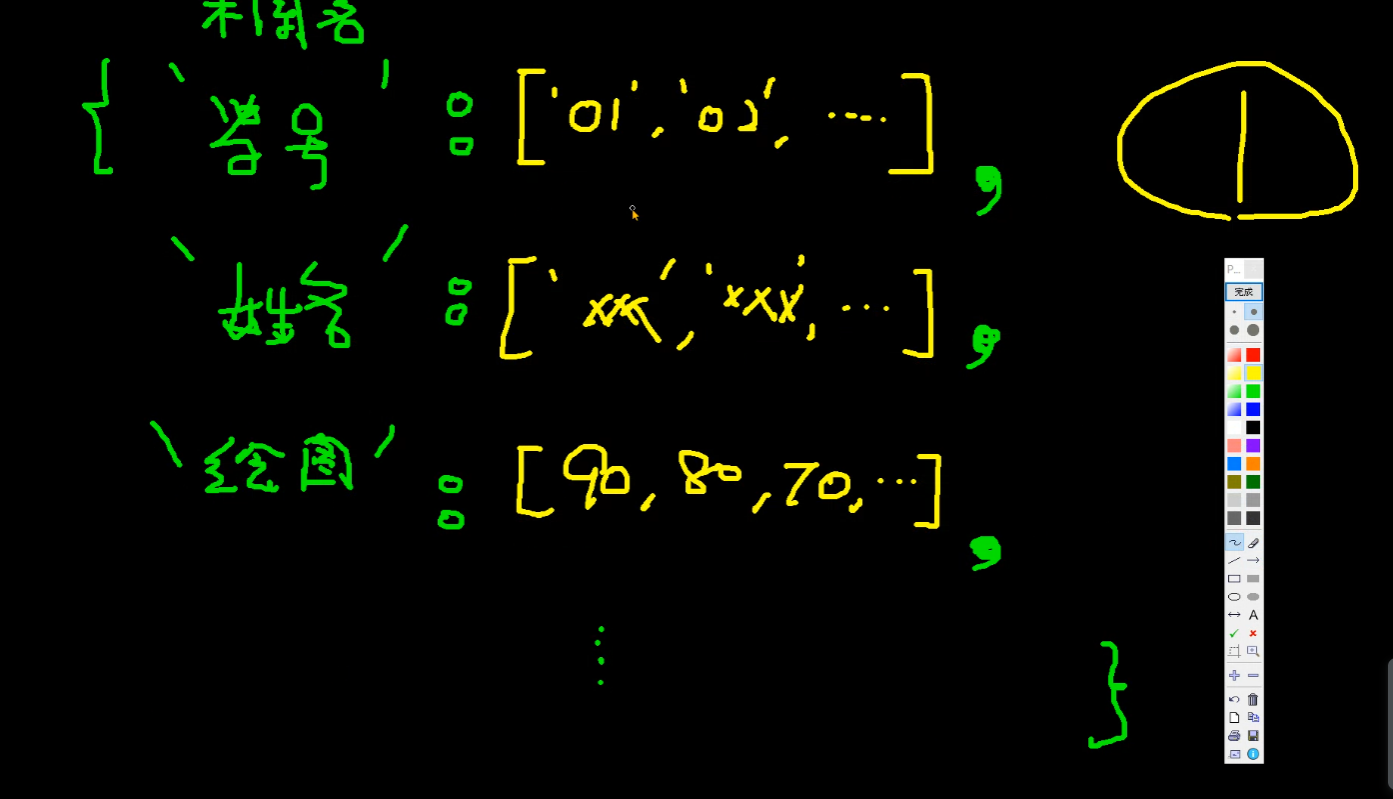 { '学号' : ['01', '02', ....] ,
'姓名' : ['xxx', 'xxx', ...] ,
'绘图' : [90, 80, 70, ...] ,
⋮
}
P...
完成
A